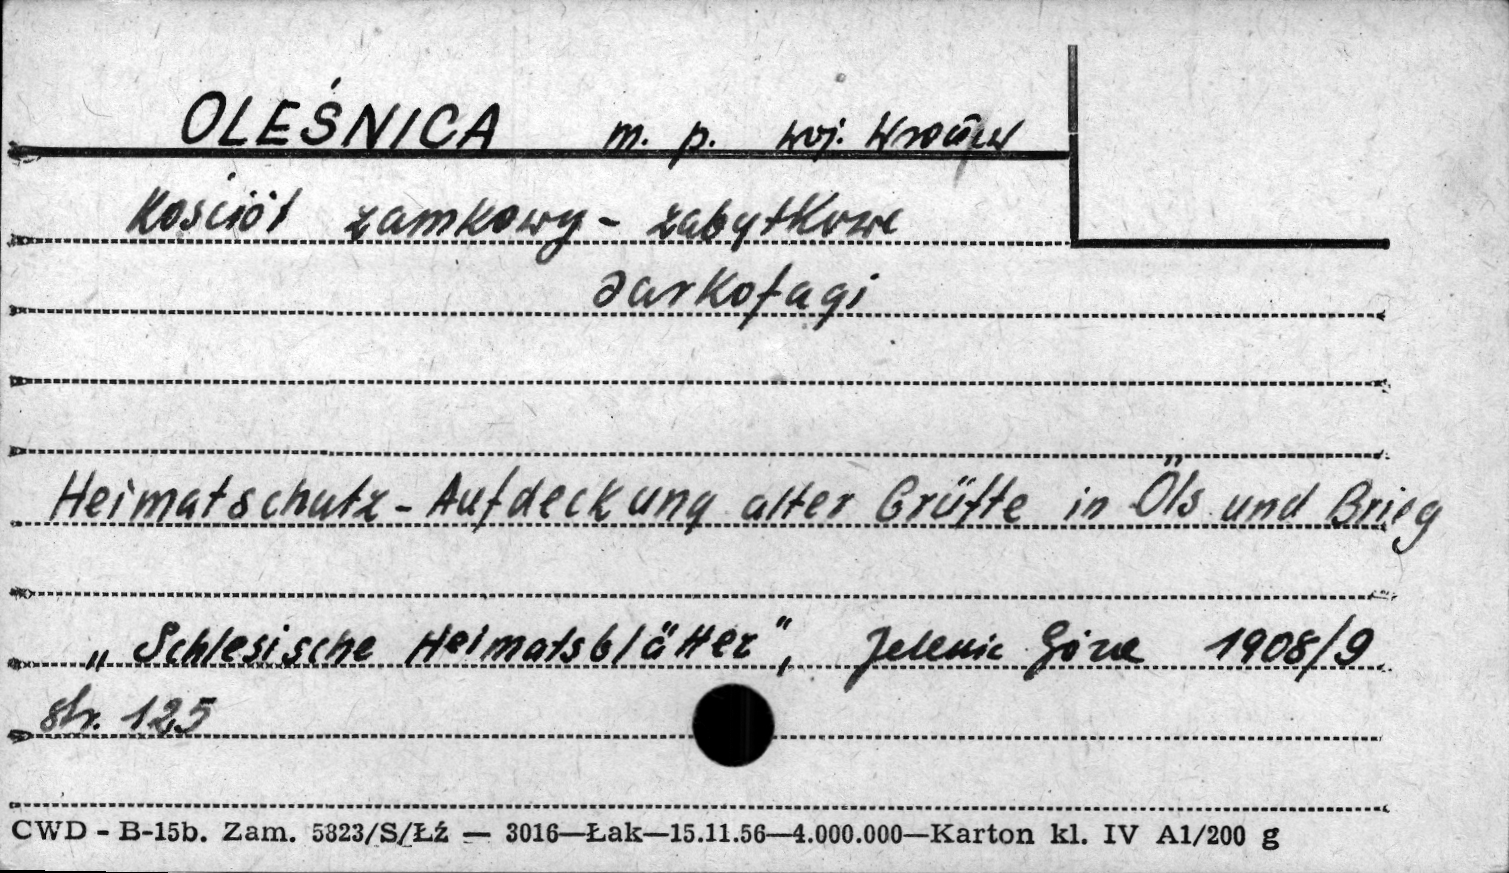 OLEŚNICA m. p. woj. Wrocław
Kościół zamkowy - zabytkowe
sarkofagi
Heimatschutz - Aufdeckung alter Grüfte in Öls und Brieg
„Schlesische Heimatsblätter", Jelenia Góra 1908/9
str. 125
CWD - B-15b. Zam. 5323/S/Łź — 3016—Łak—15.11.56—4.000.000—Karton kl. IV A1/200 g